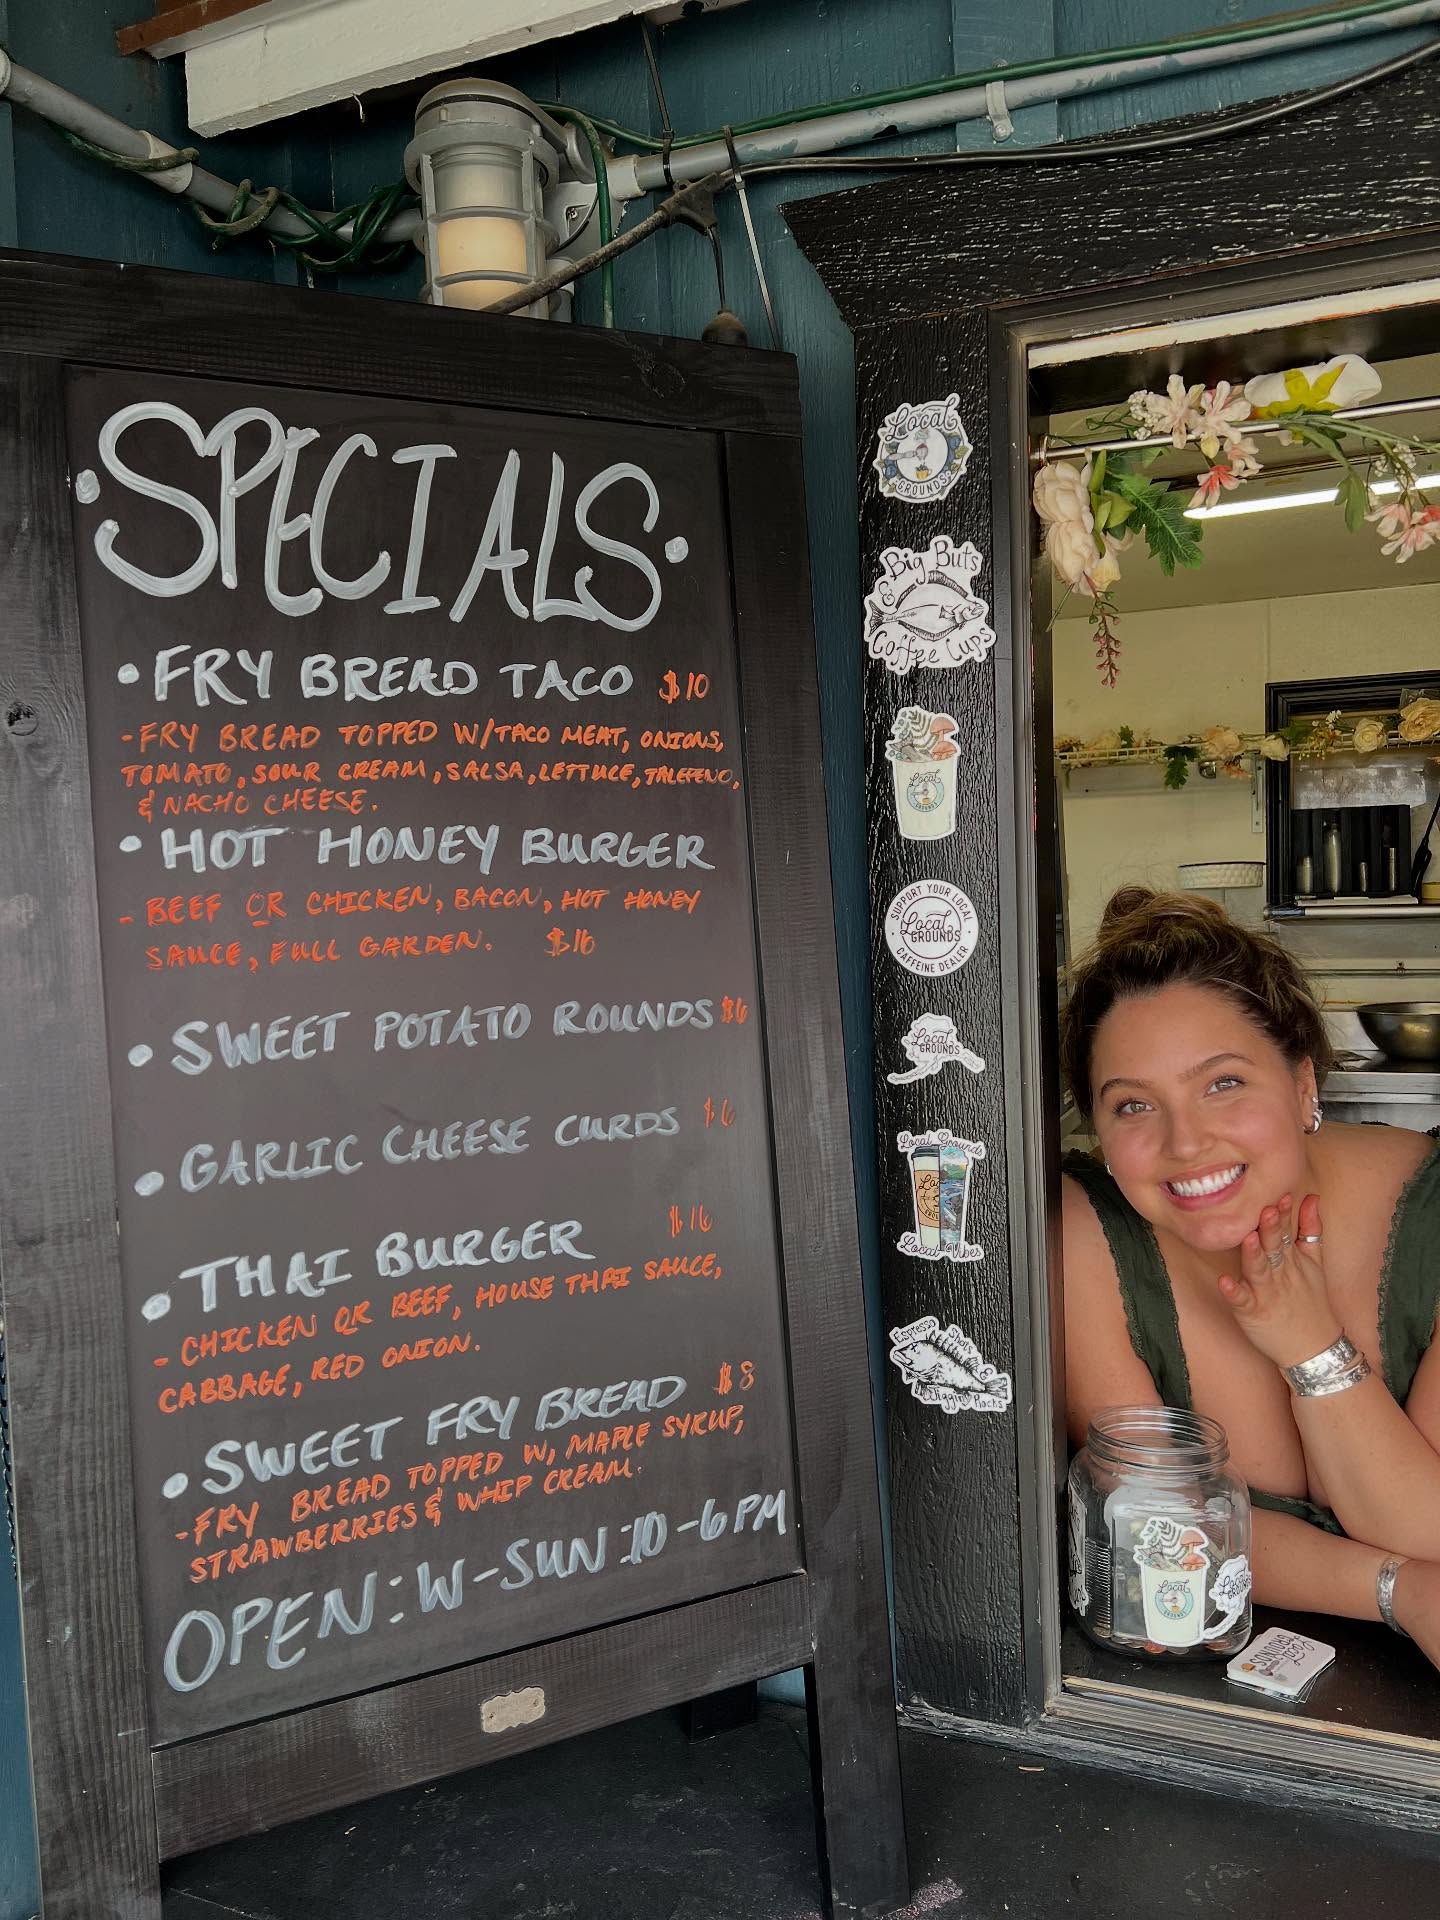 •SPECIALS•
•FRY BREAD TACO $10
-FRY BREAD TOPPED W/TACO MEAT, ONIONS,
TOMATO, SOUR CREAM, SALSA, LETTUCE, JALEPENO,
& NACHO CHEESE.
•HOT HONEY BURGER
- BEEF OR CHICKEN, BACON, HOT HONEY
SAUCE, FULL GARDEN. $16
•SWEET POTATO ROUNDS $6
•GARLIC CHEESE CURDS $6
•THAI BURGER $16
- CHICKEN OR BEEF, HOUSE THAI SAUCE,
CABBAGE, RED ONION.
•SWEET FRY BREAD $8
-FRY BREAD TOPPED W, MAPLE SYRUP,
STRAWBERRIES & WHIP CREAM.
OPEN: W-SUN:10-6PM
Local
GROUNDS
Big Buts
&
Coffee Cups
Local
GROUNDS
SUPPORT YOUR LOCAL
Local
GROUNDS
CAFFEINE DEALER
Local
GROUNDS
Local Grounds
Local Vibes
Espresso Shots
&
Jiggin' Rocks
Local
GROUNDS
Local
GROUNDS
Local
GROUNDS